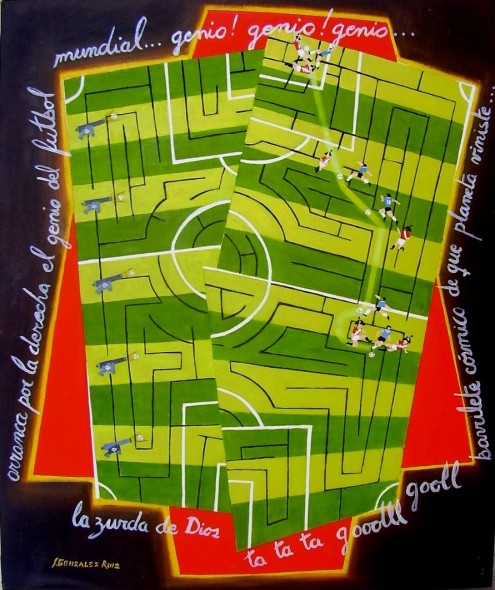 arranca por la derecha el genio del futbol
mundial... genio! genio! genio...
barrilete cósmico de que planeta viniste...
la zurda de Dios
ta ta ta gooolll gooll
J.GONZALEZ RUIZ